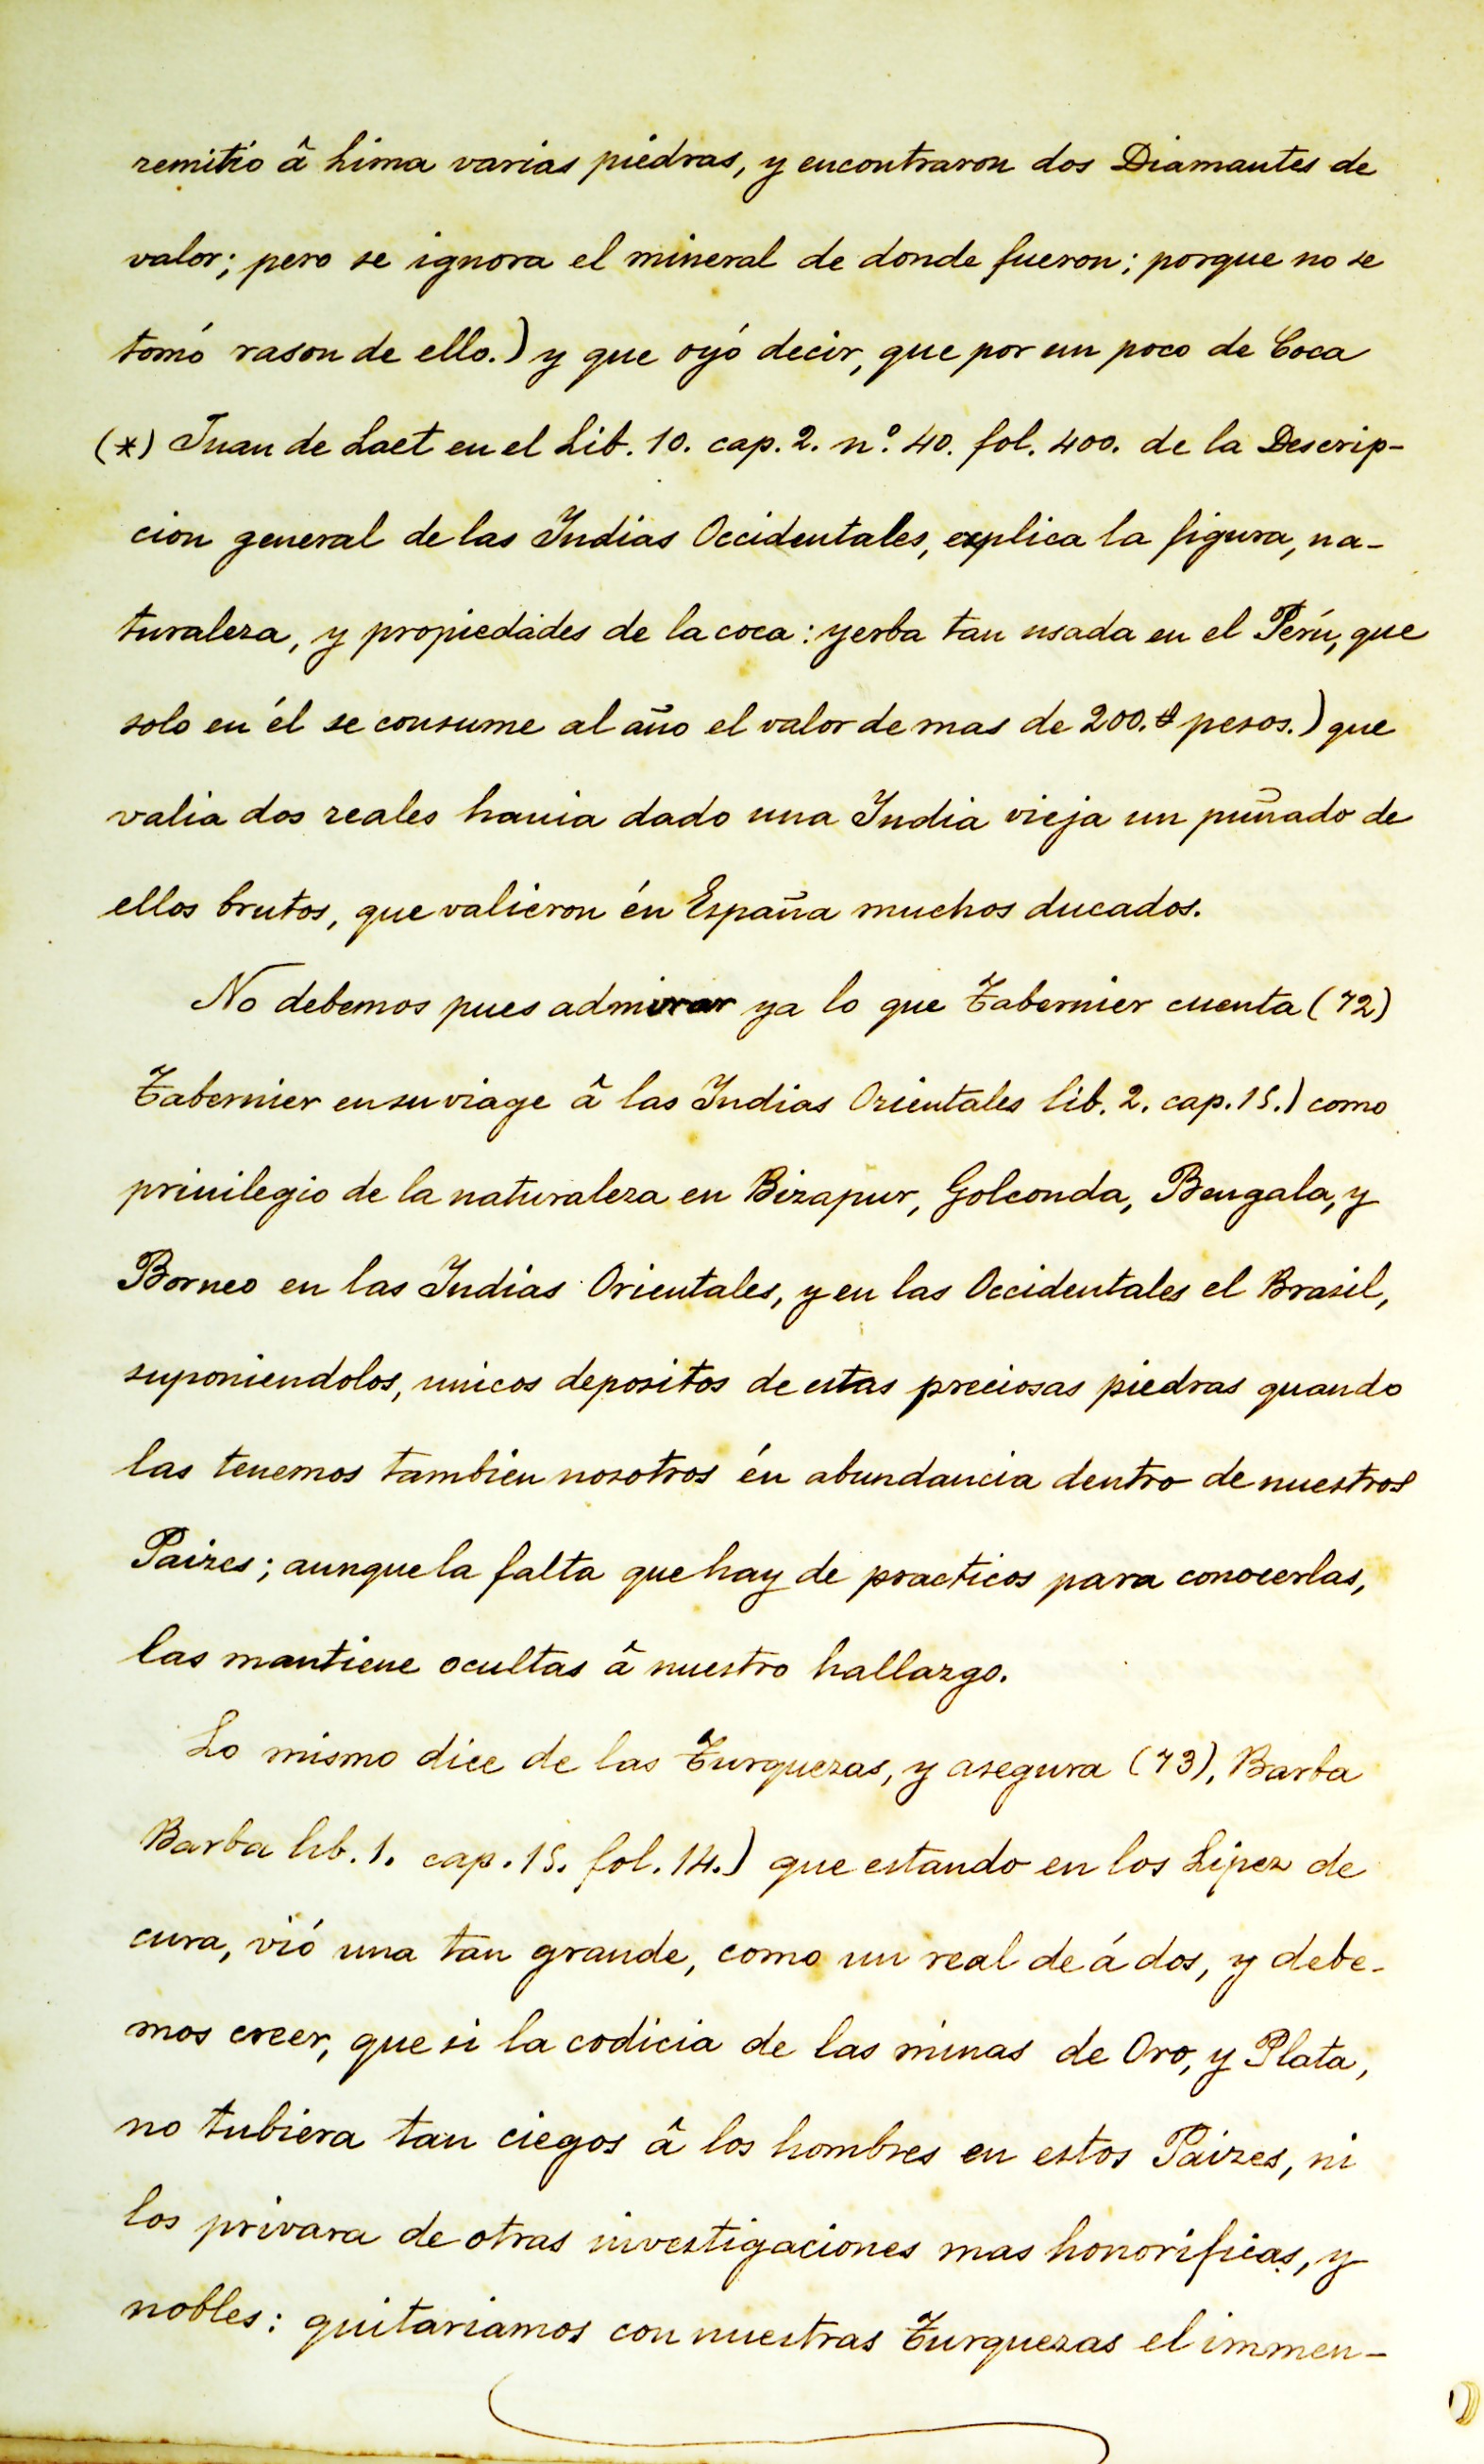 remitio â Lima varias piedras, y encontraron dos Diamantes de
valor; pero se ignora el mineral de donde fueron; porque no se
tomó rason de ello.) y que oyó decir, que por un poco de Coca
(*) Juan de Laet en el Lib. 10. cap. 2. n.º 40. fol. 400. de la Descrip-
cion general de las Indias Occidentales, explica la figura, na-
turaleza, y propiedades de la coca: yerba tan usada en el Perú, que
solo en él se consume al año el valor de mas de 200. pesos.) que
valia dos reales hauia dado una India vieja un puñado de
ellos brutos, que valieron én España muchos ducados.
No debemos pues admirar ya lo que Tabernier cuenta (72)
Tabernier en su viage â las Indias Orientales lib. 2. cap. 15.) como
priuilegio de la naturaleza en Bizapur, Golconda, Bengala, y
Borneo en las Indias Orientales, y en las Occidentales el Brasil,
suponiendolos, unicos depositos de estas preciosas piedras quando
las tenemos tambien nosotros én abundancia dentro de nuestros
Paizes; aunque la falta que hay de practicos para conocerlas,
las mantiene ocultas â nuestro hallazgo.
Lo mismo dice de las Turquezas, y asegura (73), Barba
Barba lib. 1. cap. 15. fol. 14.) que estando en los Lipez de
cura, vió una tan grande, como un real de á dos, y debe-
mos creer, que si la codicia de las minas de Oro, y Plata,
no tubiera tan ciegos â los hombres en estos Paizes, ni
los privara de otras investigaciones mas honorificas, y
nobles: quitariamos con nuestras Turquezas el immen-